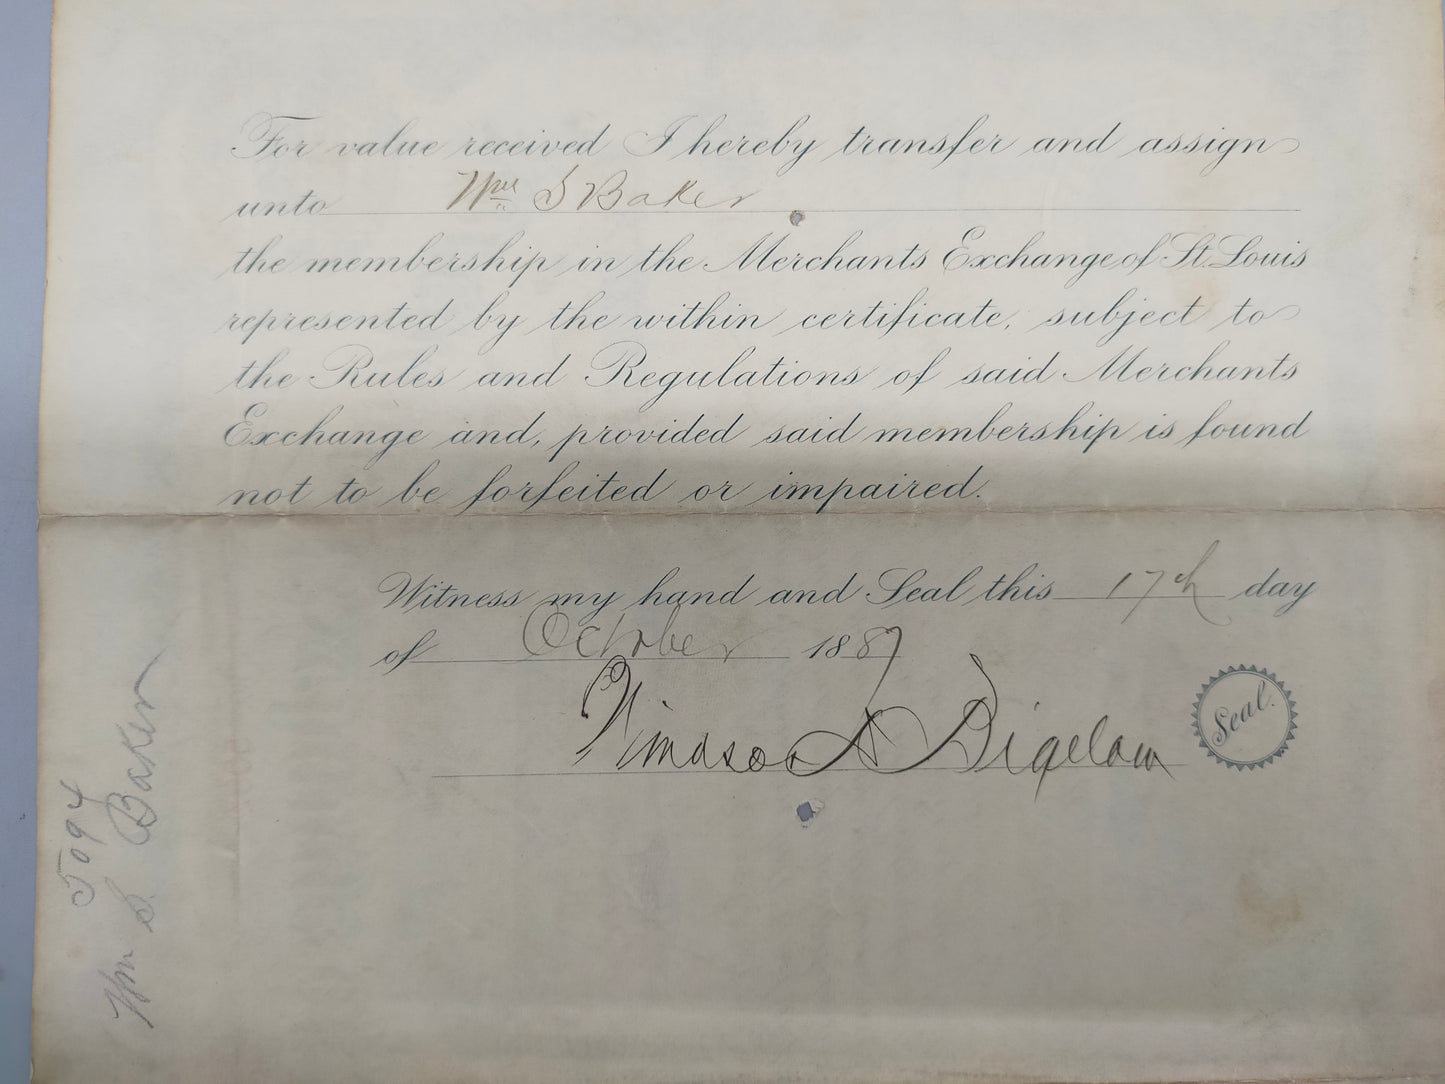 For value received I hereby transfer and assign
unto Wm S Baker
the membership in the Merchants Exchange of St. Louis
represented by the within certificate, subject to
the Rules and Regulations of said Merchants
Exchange and, provided said membership is found
not to be forfeited or impaired.
Witness my hand and Seal this 17th day
of October 1887
Windsor A Bigelow
Seal.
5094
Wm S. Baker